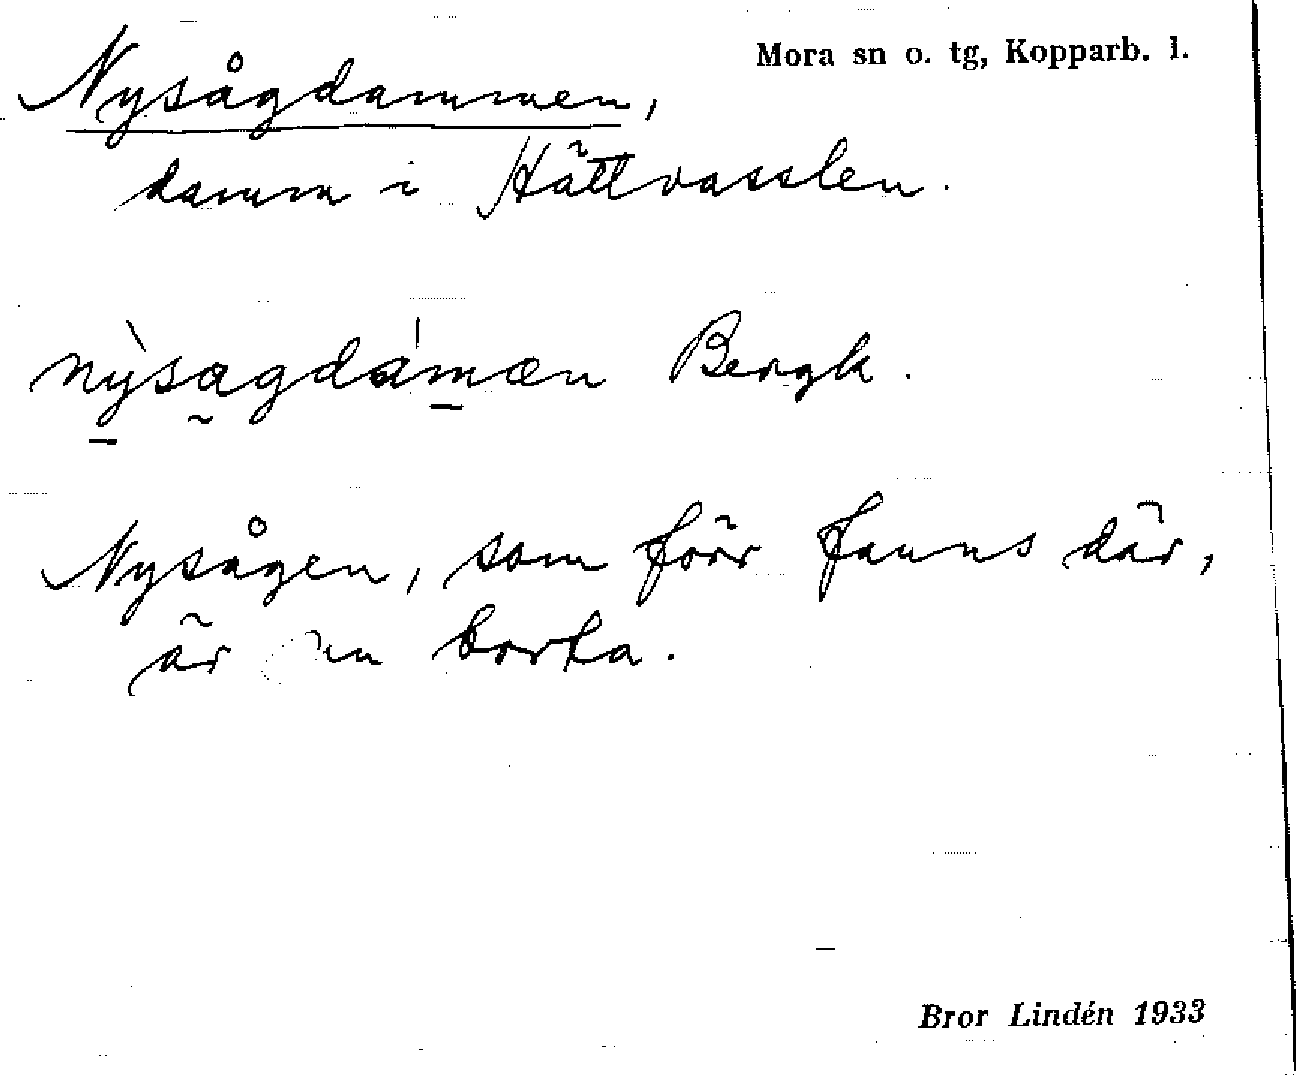 Mora sn o. tg, Kopparb. l.
Nysågdammen,
damm i Hättvasslen.
nỳsagdámæn Bergk.
Nysågen, som förr fanns där,
är nu borta.
Bror Lindén 1933